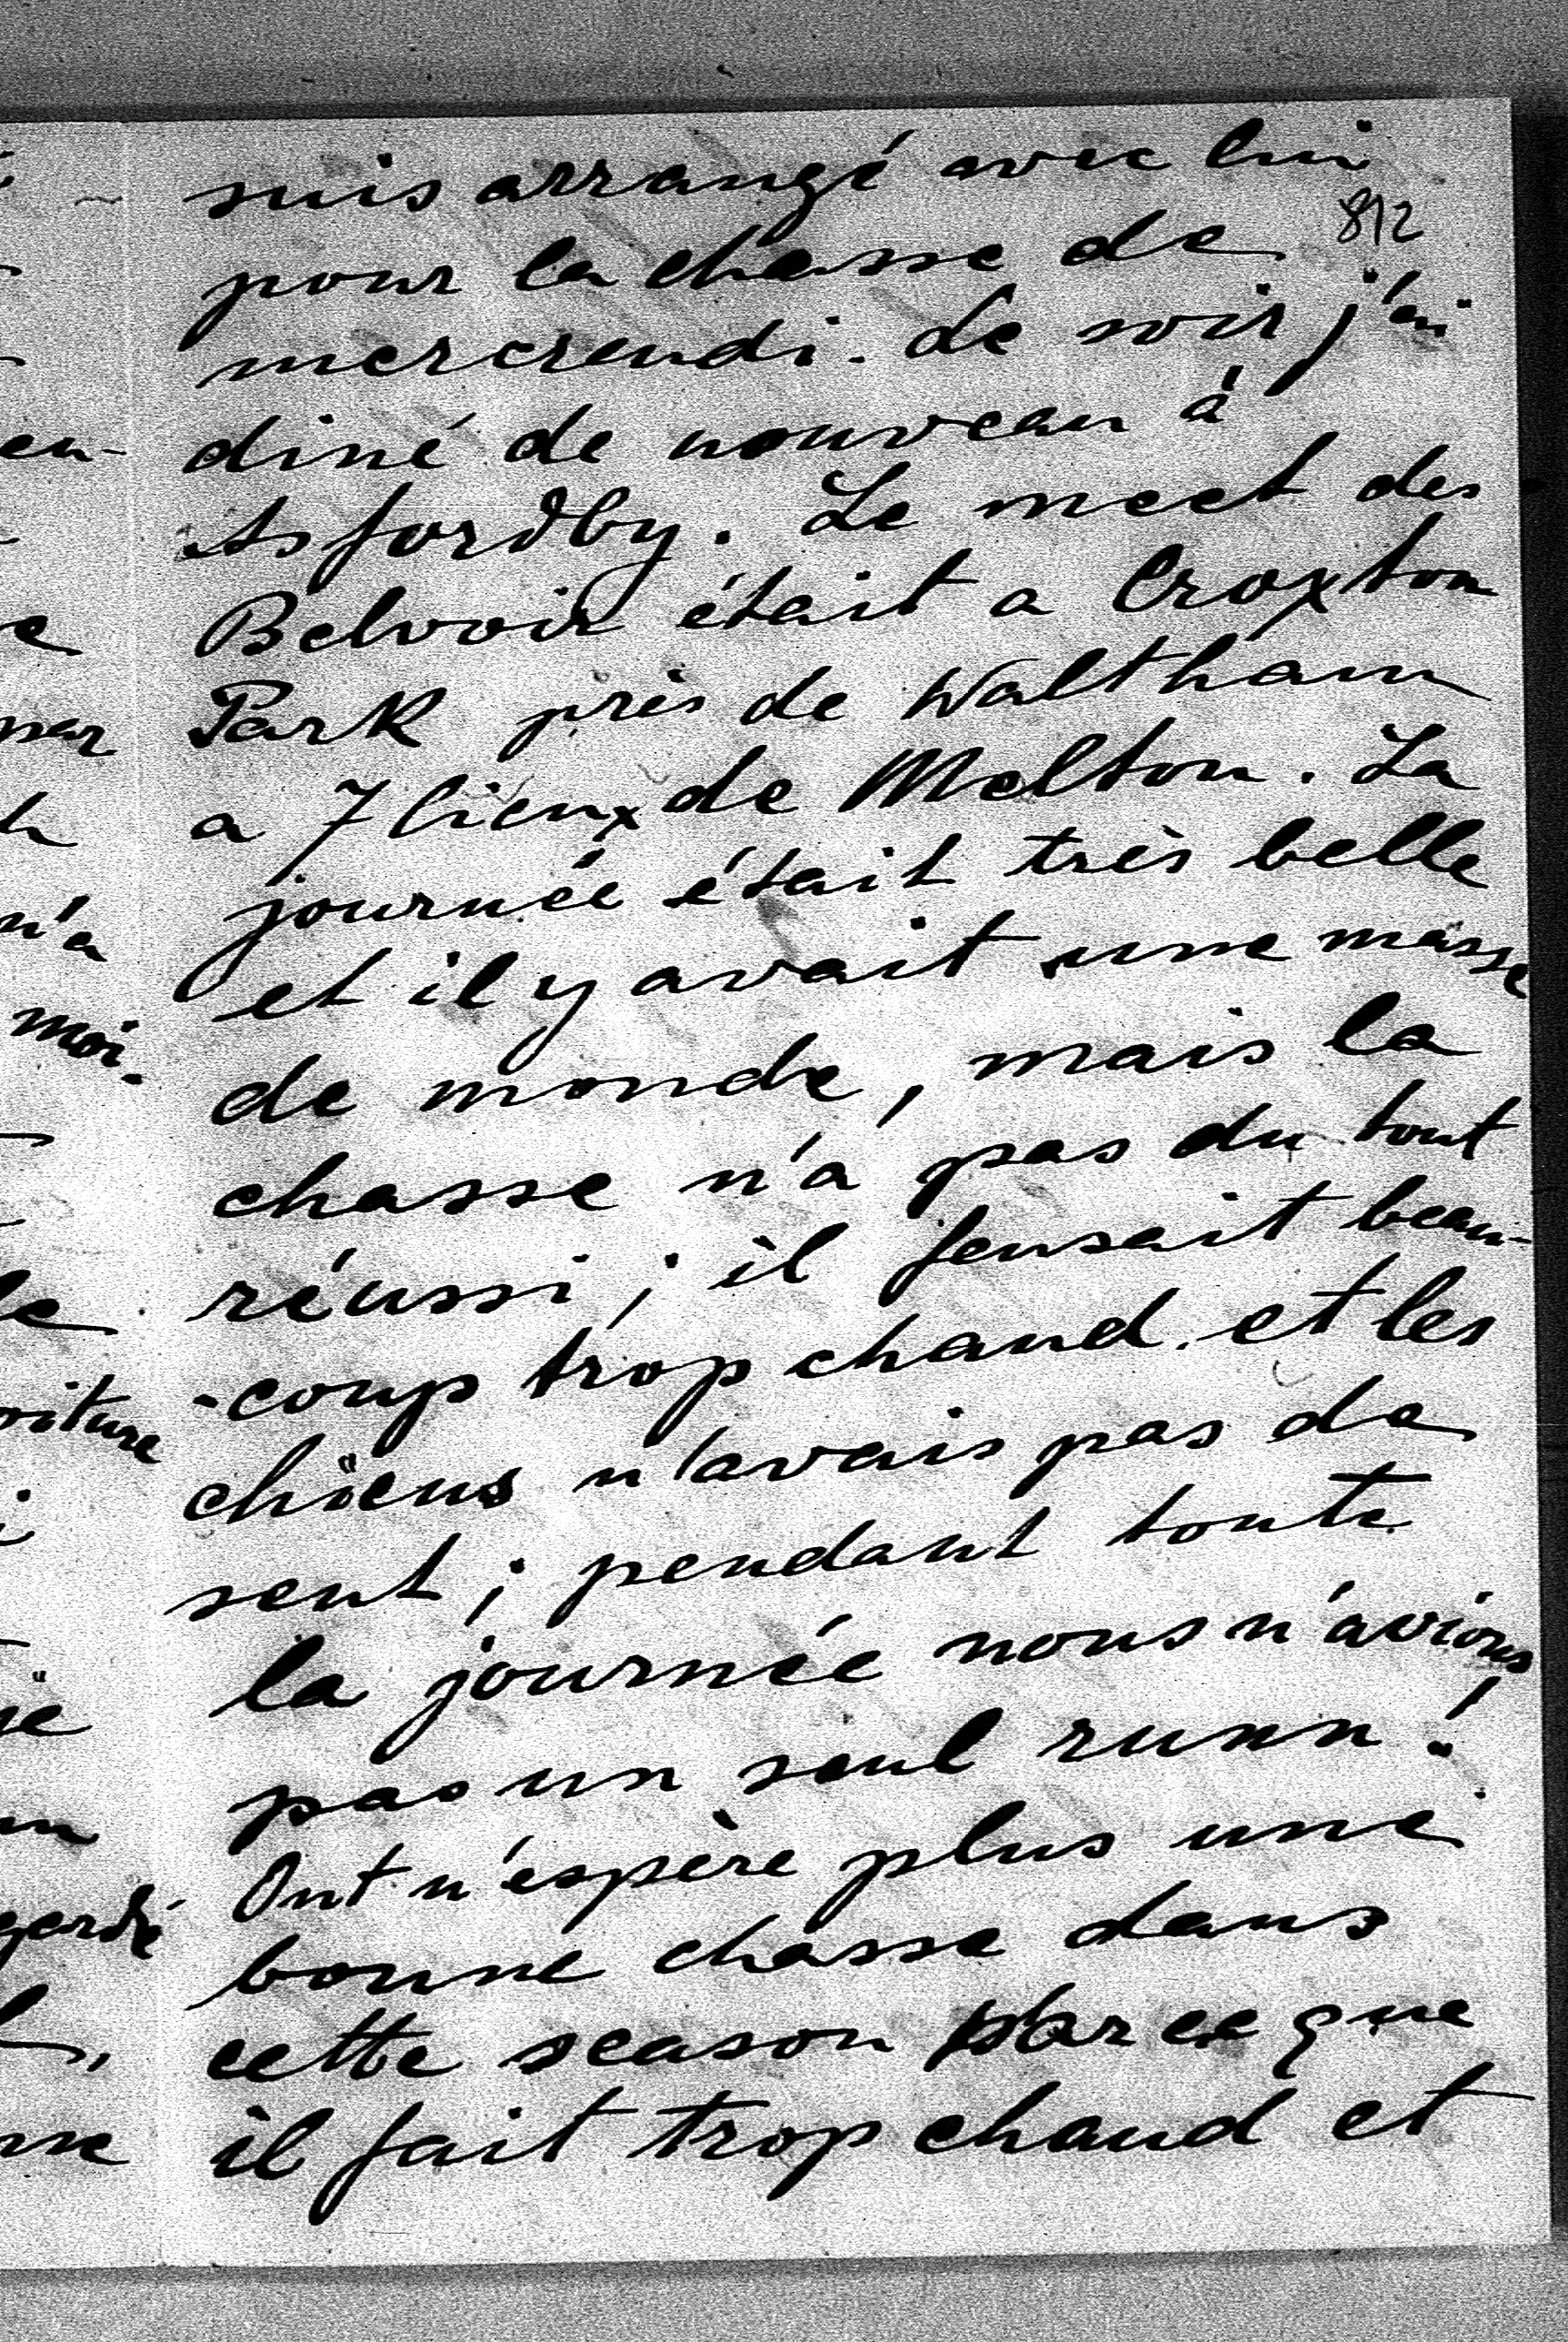 suis arrangé avec lui
812
pour la chasse de
mercrendi. Le soir j'ai
diné de nouveau à
Asfordby. Le meet des
Belvoir était a Croxton
Park près de Waltham
a 7 lieux de Melton. La
journée était très belle
et il y avait une masse
de monde, mais la
chasse n'a pas du tout
réussi; il fensait beau-
-coup trop chaud et les
chiens n'avais pas de
sent; pendant toute
la journée nous n'avions
pas un seul runn!
Ont n'espère plus une
bonne chasse dans
cette season parce que
il fait trop chaud et